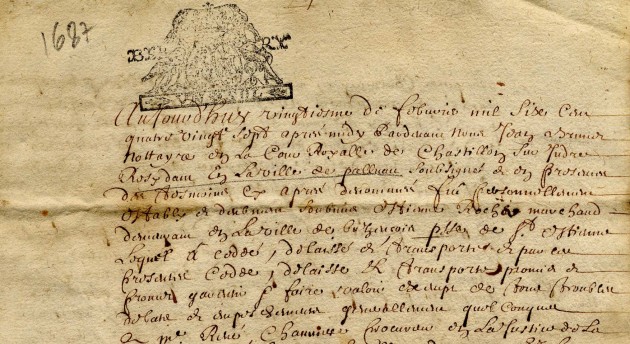 1687
BE RY
Aujourdhuy vingtiesme de febvrier mil Six Cen
quatre vingt Sept apres midy Pardevant Nous Jean
Nottayre en La Cour Royalle de Chastillon Sur Indre
Residant En La ville de palluau Soubsigné et en presence
des tesmoins Cy apres denommes fut personnellement
Estably et deubment Soubmis Estienne Roché marchand
demeurant en La ville de buzencois psse de St Estienne
Lequel a Ceddé, delaissé et transporté et par ces
presente Cedde, delaisse et transporte promis et
promet garantir & faire valoir exempt de tous troubles
debats et empeschement generallement quel Conque
A me René procureur en La Justice de La